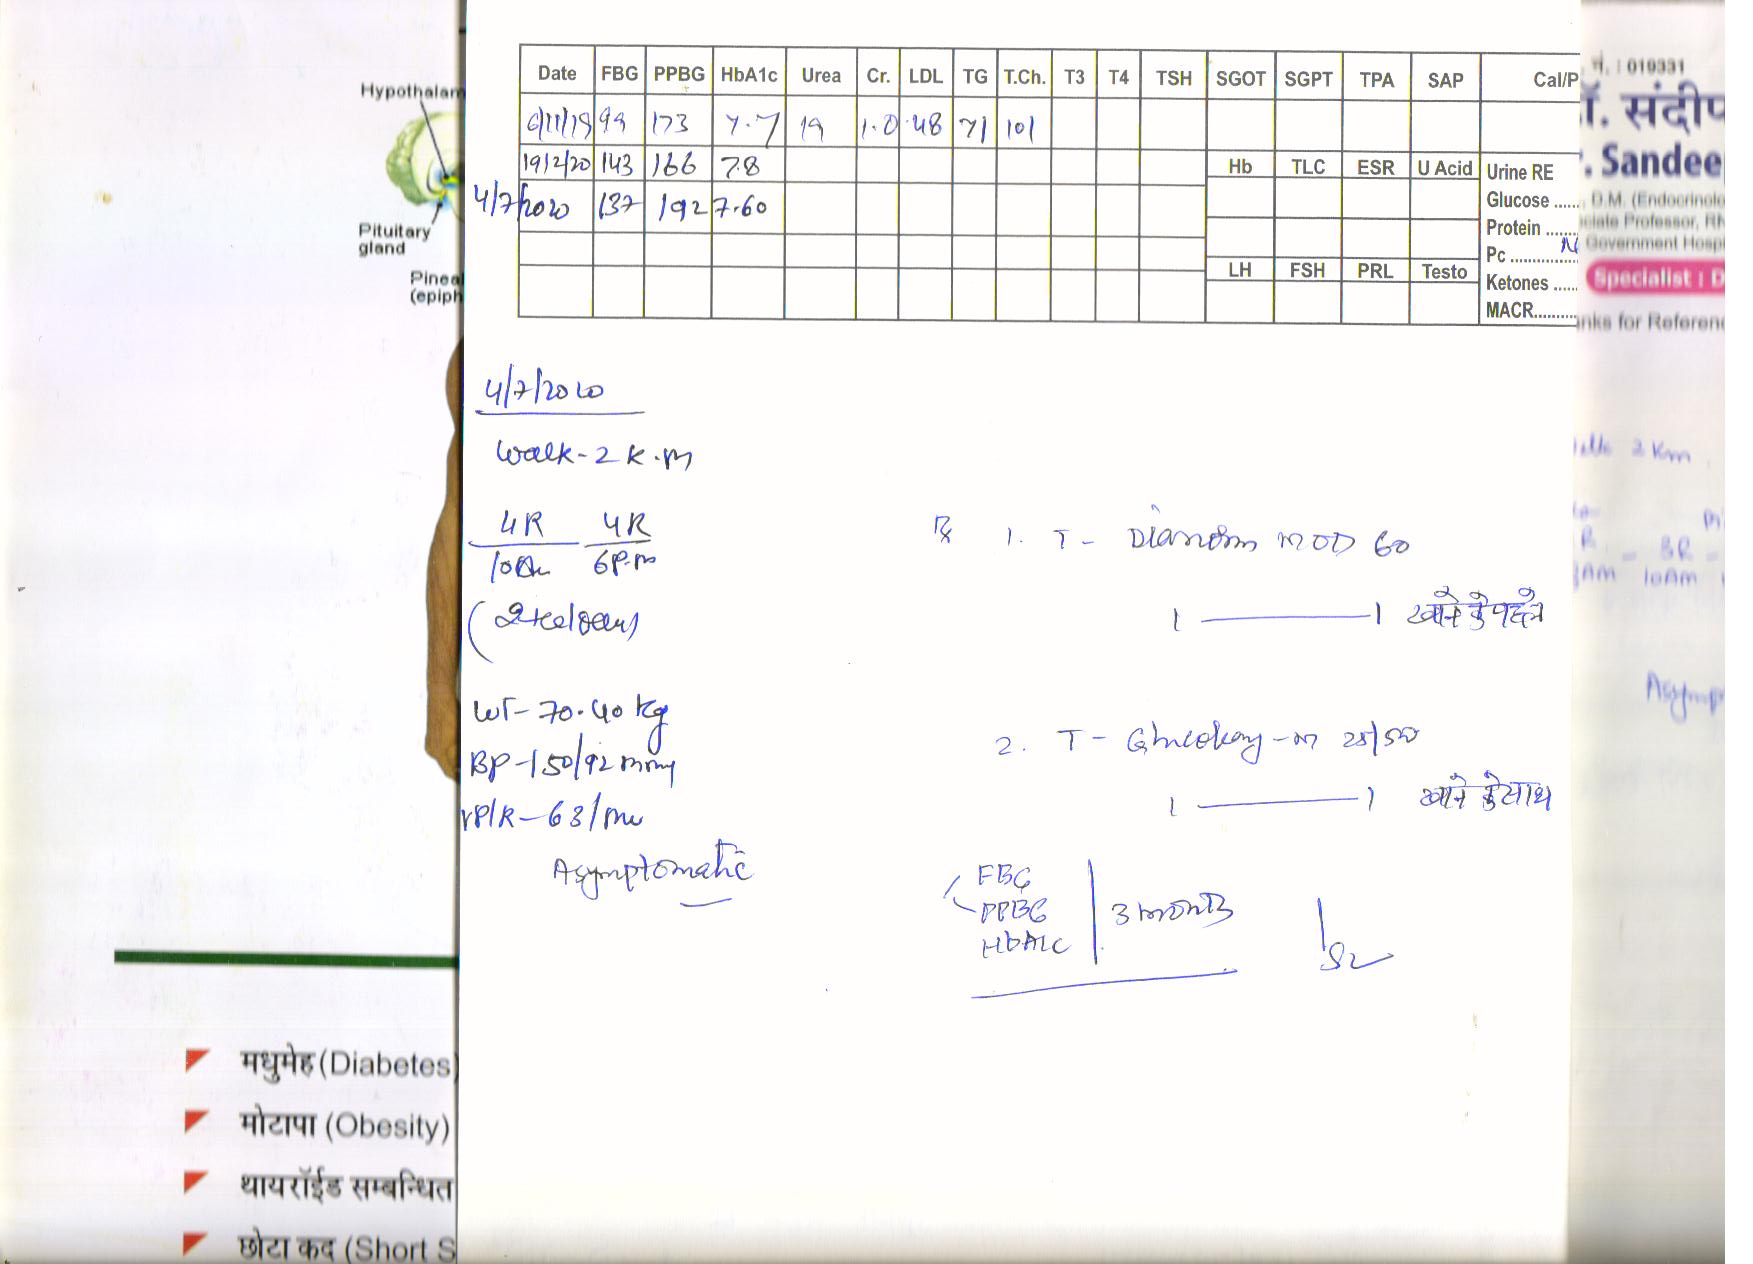 Hypothalam
Pituitary
gland
Pinea
(epiph
Date FBG PPBG HbA1c Urea Cr. LDL TG T.Ch. T3 T4 TSH SGOT SGPT TPA SAP Cal/P
6/11/19 99 173 7.7 19 1.0 48 71 101
19/2/20 143 166 7.8
4/7/2020 137 192 7.60
Hb TLC ESR U Acid Urine RE
Glucose ......
Protein .......
Pc ..............
LH FSH PRL Testo
Ketones .....
MACR.........
4/7/2020
Walk - 2 K.m
4R 4R
10am 6P.m
WT- 70.40 kg
BP- 150/92 mmHg
P/R - 63/
Asymptomatic
Rx 1. T - Dianorm MOD 60
1 ——— 1 खाने के पहले
2. T - -M 25/500
1 ——— 1 खाने के साथ
FBG
PPBG
HbA1C
3 months
मधुमेह (Diabetes)
मोटापा (Obesity)
थायरॉईड सम्बन्धित
छोटा कद (Short S
नं. : 019331
ॉ. संदीप
. Sandee
D.M. (Endocrinolo
ciate Professor, RN
Government Hospi
Specialist : D
nks for Referenc
2 Km
BR
10AM
Asymp